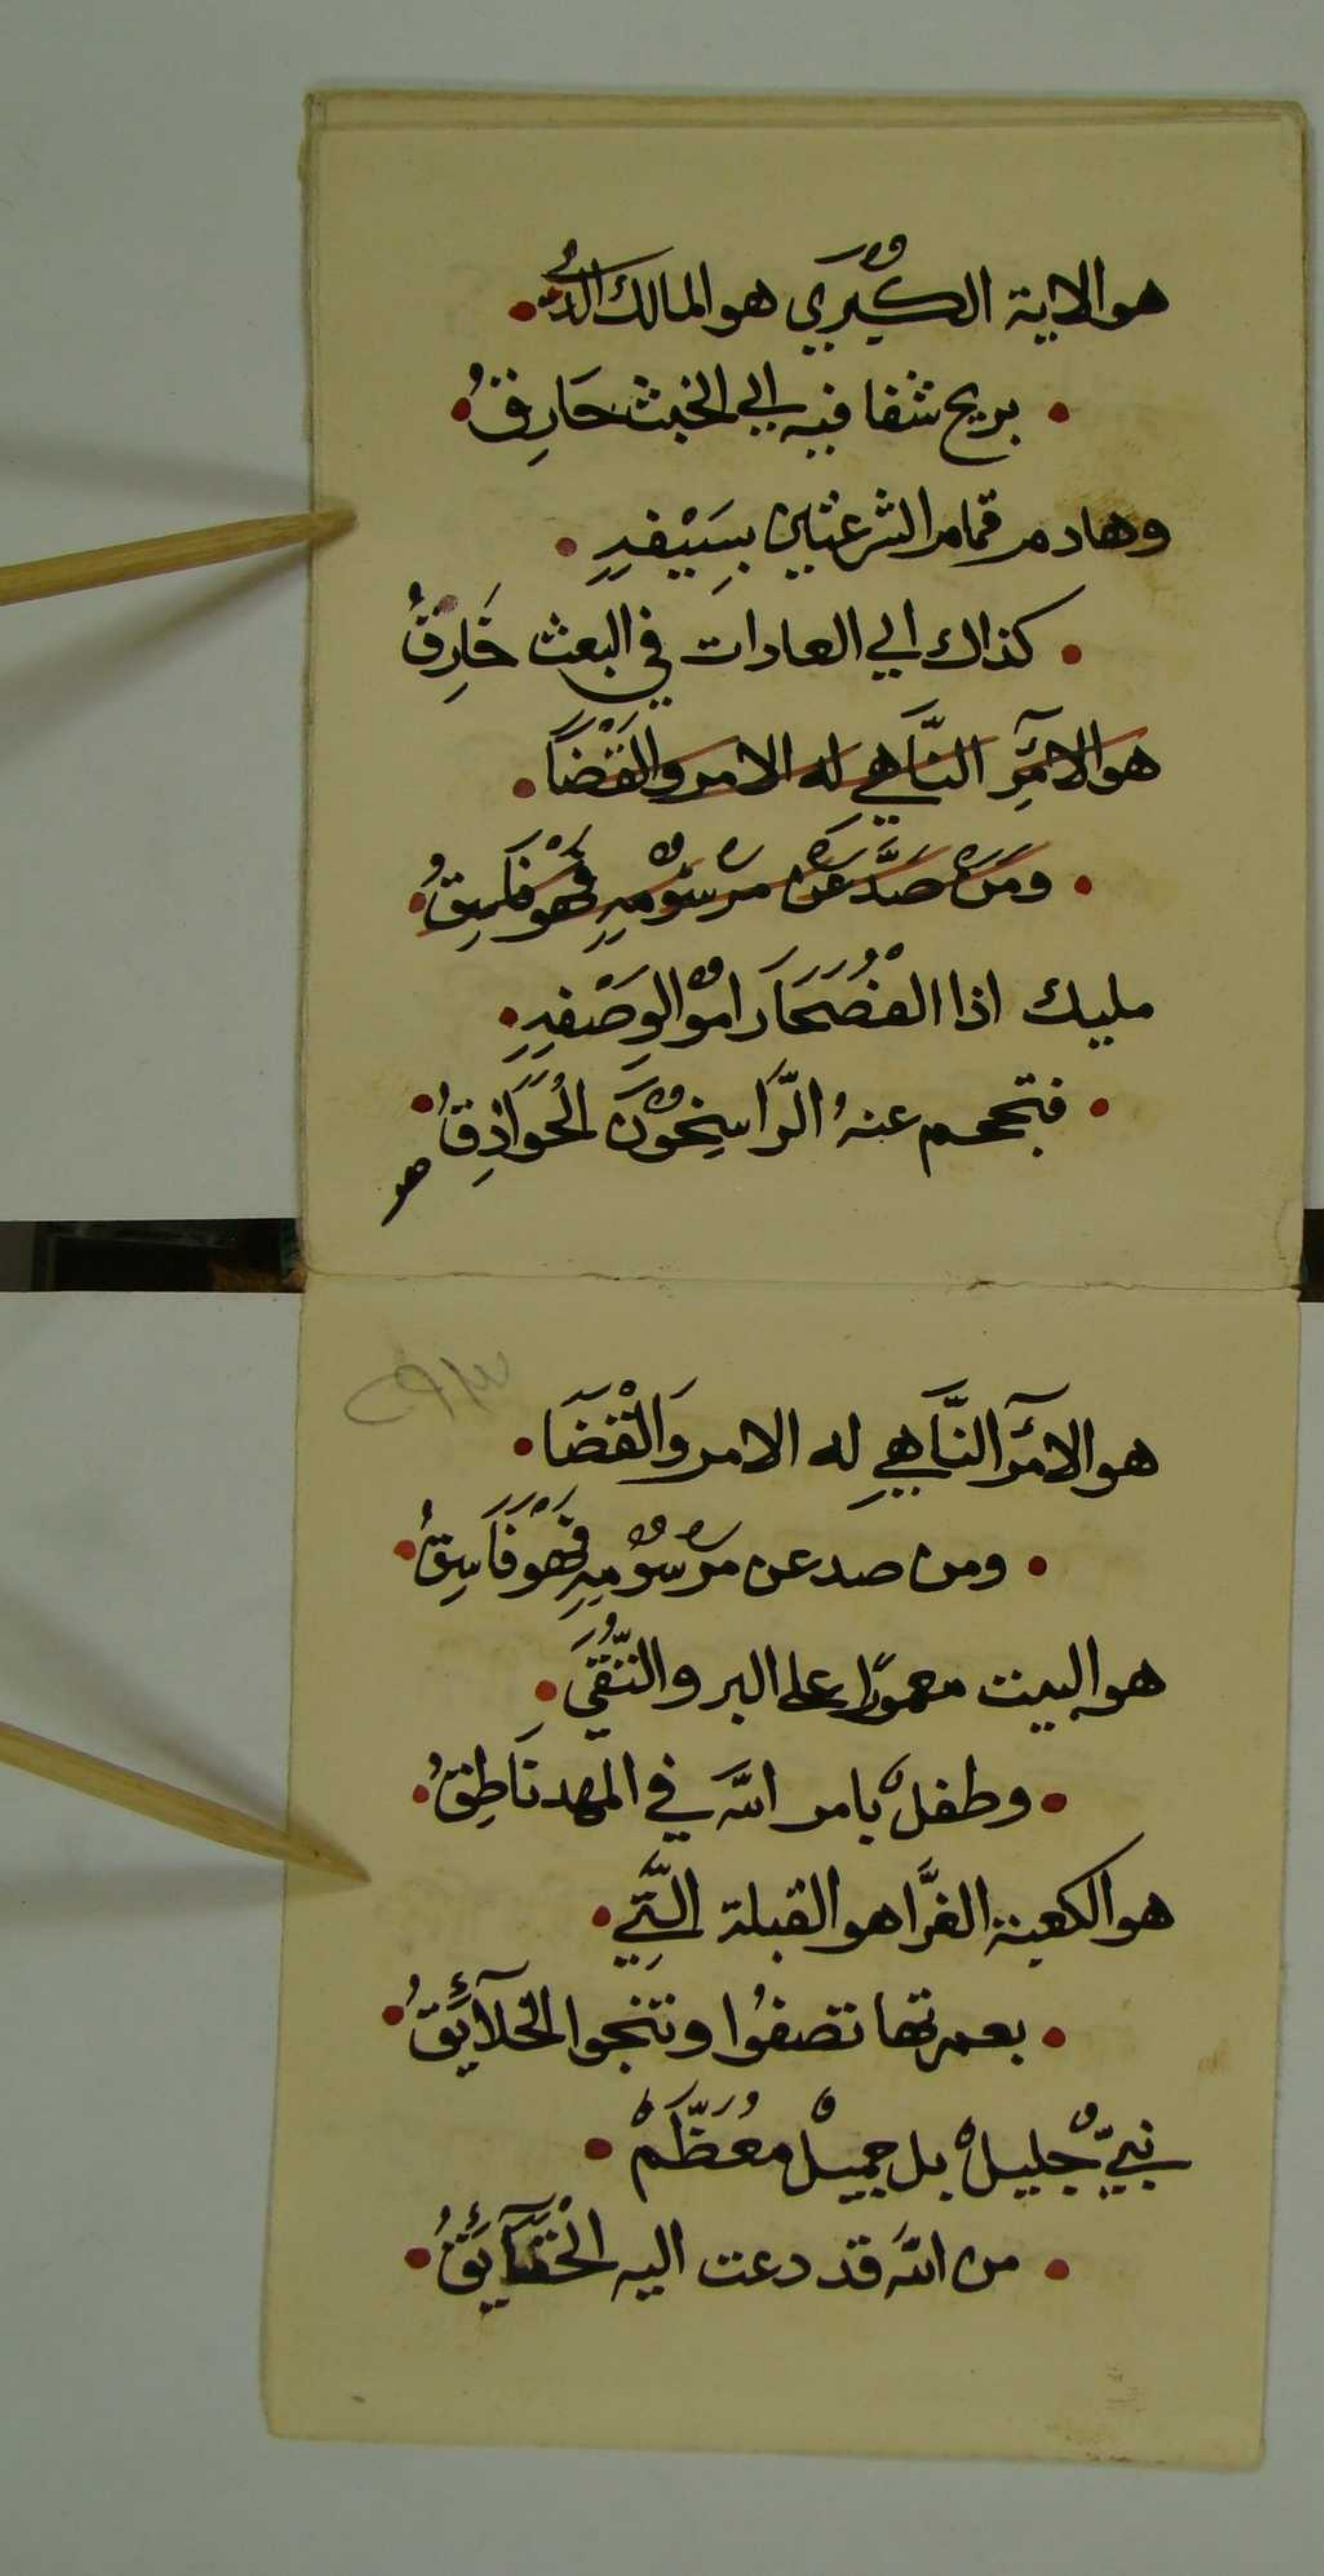 هو الاية الكُبرَي هو المالك الذي
بريح شفا فيه الي الخبث حَارِقُ
وهادم قمام الشرعثين بِسَيْفِهِ
كذاك الي العادات في البعث خَارِقُ
هو الآمِرِ النَّاهي له الامر والقَضَا
ومَنْ صَدَّ عَنْ مرسُوْمِهِ فَهْوَ فَاسِقُ
مليك اذا الفُصَحَا رامُوْا لِوَصْفِهِ
فتجحم عنهُ الرَّاسِخُوْنَ الحُوَاذِقُ
هو
هو الآمر النَّاهِي له الامر وَالْقَضَا
ومن صد عن مَرْسُوْمِهِ فَهْوَ فَاسِقُ
هو البيت معمورًا علي البر والتُّقَي
وطفلٌ بامر اللَّه في المهد نَاطِقُ
هو الكعبة الغرَّا هو القبلة الَّتِي
بعمرتها تصفُوا وتنجوا الخلآئِقُ
نبيٌّ جليلٌ بل جميلٌ مُعَظَّمٌ
من اللَّه قد دعت اليه الْحَقَآئِقُ